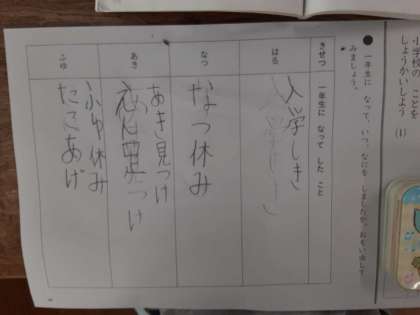 小学校の ことを
しょうかいしよう
(1)
● 一年生に なって、いつ、なにを しましたか。おもい出して
みましょう。
きせつ
一年生に なって した こと
はる
入学しき
なつ
なつ休み
あき
あき見つけ
ふゆ
ふゆ休み
たこあげ